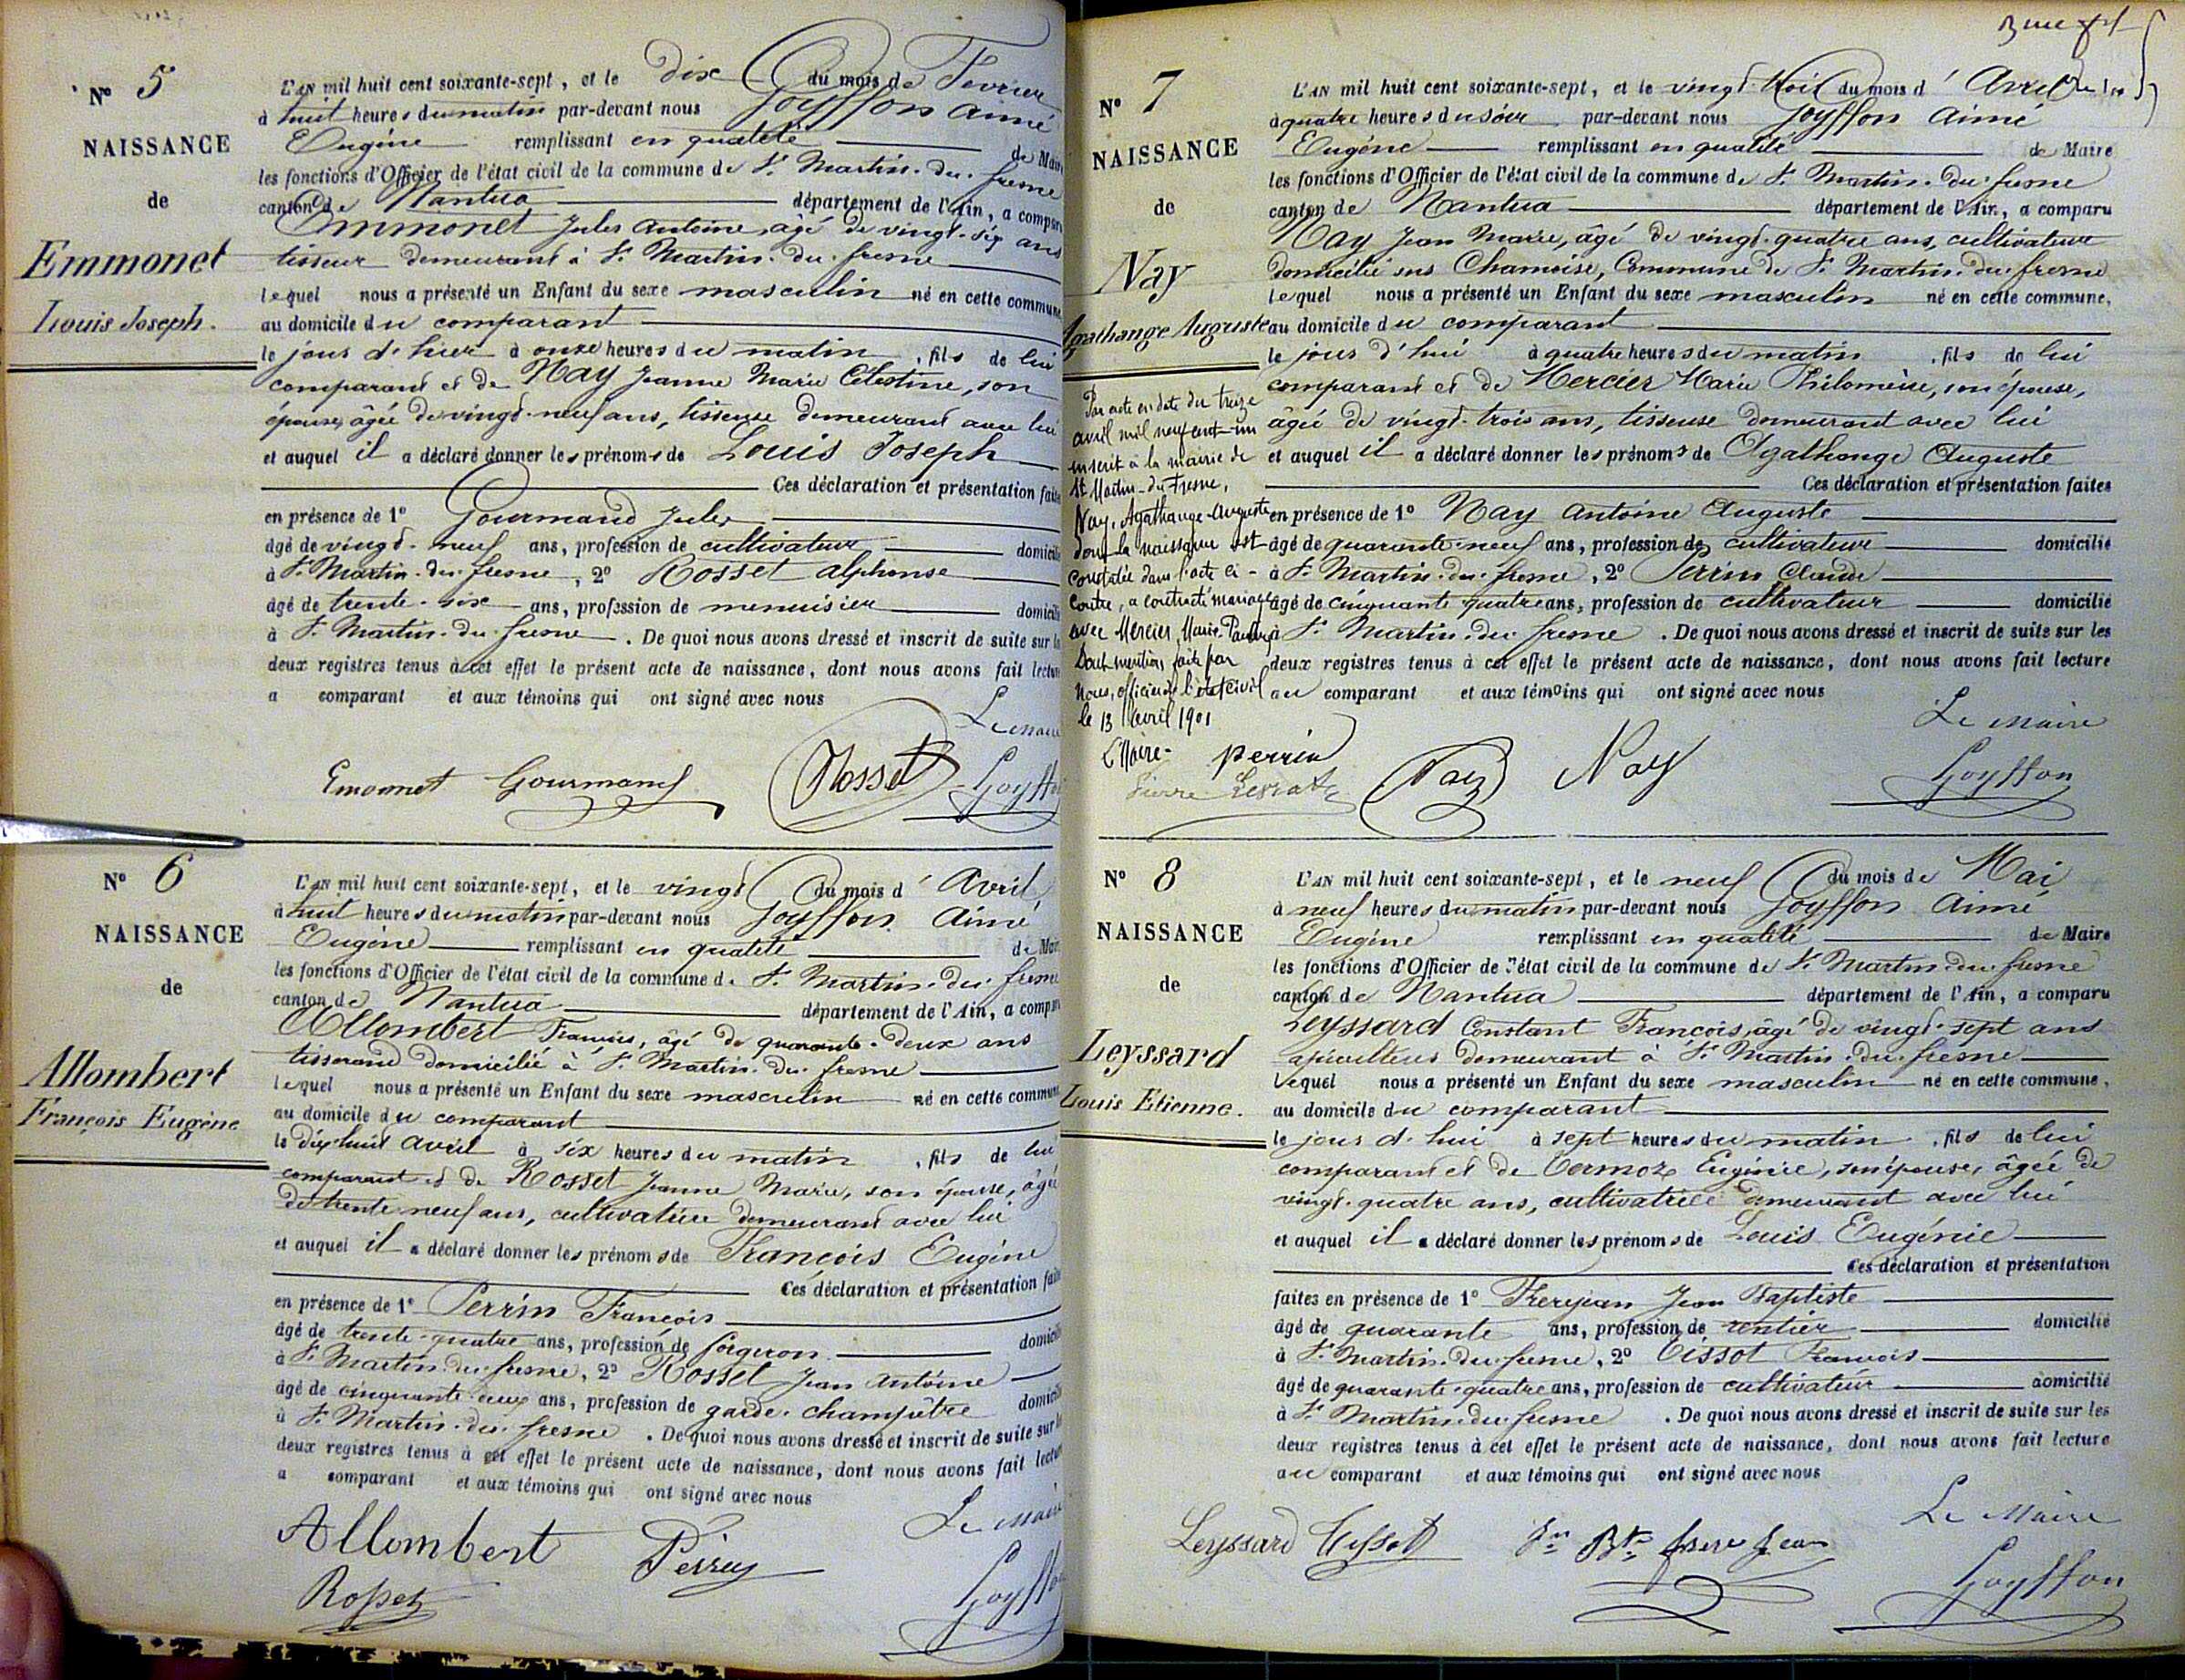 N° 5
NAISSANCE
de
Emmonet
Louis Joseph.
L'AN mil huit cent soixante-sept, et le dix du mois de Fevrier
à huit heures du matin par-devant nous Goyffon Aimé
Eugène remplissant en qualité de Maire
les fonctions d'Officier de l'état civil de la commune de St Martin-du-fresne
canton de Nantua département de l'Ain, a comparu
Emmonet Jules Antoine, âgé de vingt-six ans
tisseur demeurant à St Martin-du-fresne
lequel nous a présenté un Enfant du sexe masculin né en cette commune,
au domicile du comparant
le jour d'hier à onze heures du matin, fils de lui
comparant et de Nay Jeanne Marie Célestine, son
épouse, âgée de vingt-neuf ans, tisseuse demeurant avec lui
et auquel il a déclaré donner les prénoms de Louis Joseph
Ces déclaration et présentation faites
en présence de 1° Gourmand Jules
âgé de vingt-neuf ans, profession de cultivateur domicilié
à St Martin-du-fresne, 2° Rosset Alphonse
âgé de trente-six ans, profession de menuisier domicilié
à St Martin-du-fresne. De quoi nous avons dressé et inscrit de suite sur les
deux registres tenus à cet effet le présent acte de naissance, dont nous avons fait lecture
a comparant et aux témoins qui ont signé avec nous
Le Maire
Emonnet Gourmand Rosset Goyffon
N° 6
NAISSANCE
de
Allombert
François Eugène
L'AN mil huit cent soixante-sept, et le vingt du mois d'Avril
à huit heures du matin par-devant nous Goyffon Aimé
Eugène remplissant en qualité de Maire
les fonctions d'Officier de l'état civil de la commune de St Martin-du-fresne
canton de Nantua département de l'Ain, a comparu
Allombert François, âgé de quarante-deux ans
tisserand domicilié à St Martin-du-fresne
lequel nous a présenté un Enfant du sexe masculin né en cette commune
au domicile du comparant
le dix-huit Avril à six heures du matin, fils de lui
comparant et de Rosset Jeanne Marie, son épouse, âgée
de trente neuf ans, cultivatrice demeurant avec lui
et auquel il a déclaré donner les prénoms de François Eugène
Ces déclaration et présentation faites
en présence de 1° Perrin François
âgé de trente-quatre ans, profession de forgeron domicilié
à St Martin-du-fresne, 2° Rosset Jean Antoine
âgé de cinquante-deux ans, profession de garde-champêtre domicilié
à St Martin-du-fresne. De quoi nous avons dressé et inscrit de suite sur les
deux registres tenus à cet effet le présent acte de naissance, dont nous avons fait lecture
a comparant et aux témoins qui ont signé avec nous
Le Maire
Allombert Perrin
Rosset Goyffon
N° 7
NAISSANCE
de
Nay
Agathange Auguste
L'AN mil huit cent soixante-sept, et le vingt-trois du mois d'Avril
à quatre heures du soir par-devant nous Goyffon Aimé
Eugène remplissant en qualité de Maire
les fonctions d'Officier de l'état civil de la commune de St Martin-du-fresne
canton de Nantua département de l'Ain, a comparu
Nay Jean Marie, âgé de vingt-quatre ans, cultivateur
domicilié sus Chamoise, Commune de St Martin-du-fresne
lequel nous a présenté un Enfant du sexe masculin né en cette commune,
au domicile du comparant
le jour d'hui à quatre heures du matin, fils de lui
comparant et de Mercier Marie Philomène, son épouse,
âgée de vingt-trois ans, tisseuse demeurant avec lui
et auquel il a déclaré donner les prénoms de Agathange Auguste
Ces déclaration et présentation faites
en présence de 1° Nay Antoine Auguste
âgé de quarante-neuf ans, profession de cultivateur domicilié
à St Martin-du-fresne, 2° Perrin Claude
âgé de cinquante quatre ans, profession de cultivateur domicilié
à St Martin-du-fresne. De quoi nous avons dressé et inscrit de suite sur les
deux registres tenus à cet effet le présent acte de naissance, dont nous avons fait lecture
au comparant et aux témoins qui ont signé avec nous
Le Maire
Perrin Nay Nay Goyffon
Par acte en date du treize
avril mil neuf cent-un
inscrit à la mairie de
St Martin-du-Fresne,
Nay, Agathange-Auguste
dont la naissance est
constatée dans l'acte ci-
contre, a contracté mariage
avec Mercier, Marie-
Dont mention faite par
Nous, officier de l'état civil
le 13 Avril 1901
L'Maire-
N° 8
NAISSANCE
de
Leyssard
Louis Etienne.
L'AN mil huit cent soixante-sept, et le neuf du mois de Mai
à neuf heures du matin par-devant nous Goyffon Aimé
Eugène remplissant en qualité de Maire
les fonctions d'Officier de l'état civil de la commune de St Martin-du-fresne
canton de Nantua département de l'Ain, a comparu
Leyssard Constant François, âgé de vingt-sept ans
apiculteur demeurant à St Martin-du-fresne
lequel nous a présenté un Enfant du sexe masculin né en cette commune,
au domicile du comparant
le jour d'hui à sept heures du matin, fils de lui
comparant et de Vermoz Eugénie, son épouse, âgée de
vingt-quatre ans, cultivatrice demeurant avec lui
et auquel il a déclaré donner les prénoms de Louis Eugénie
Ces déclaration et présentation
faites en présence de 1° Frerejean Jean Baptiste
âgé de quarante ans, profession de rentier domicilié
à St Martin-du-fresne, 2° Tissot François
âgé de quarante-quatre ans, profession de cultivateur domicilié
à St Martin-du-fresne. De quoi nous avons dressé et inscrit de suite sur les
deux registres tenus à cet effet le présent acte de naissance, dont nous avons fait lecture
au comparant et aux témoins qui ont signé avec nous
Le Maire
Leyssard Tissot Jn Bte frere Jean
Goyffon